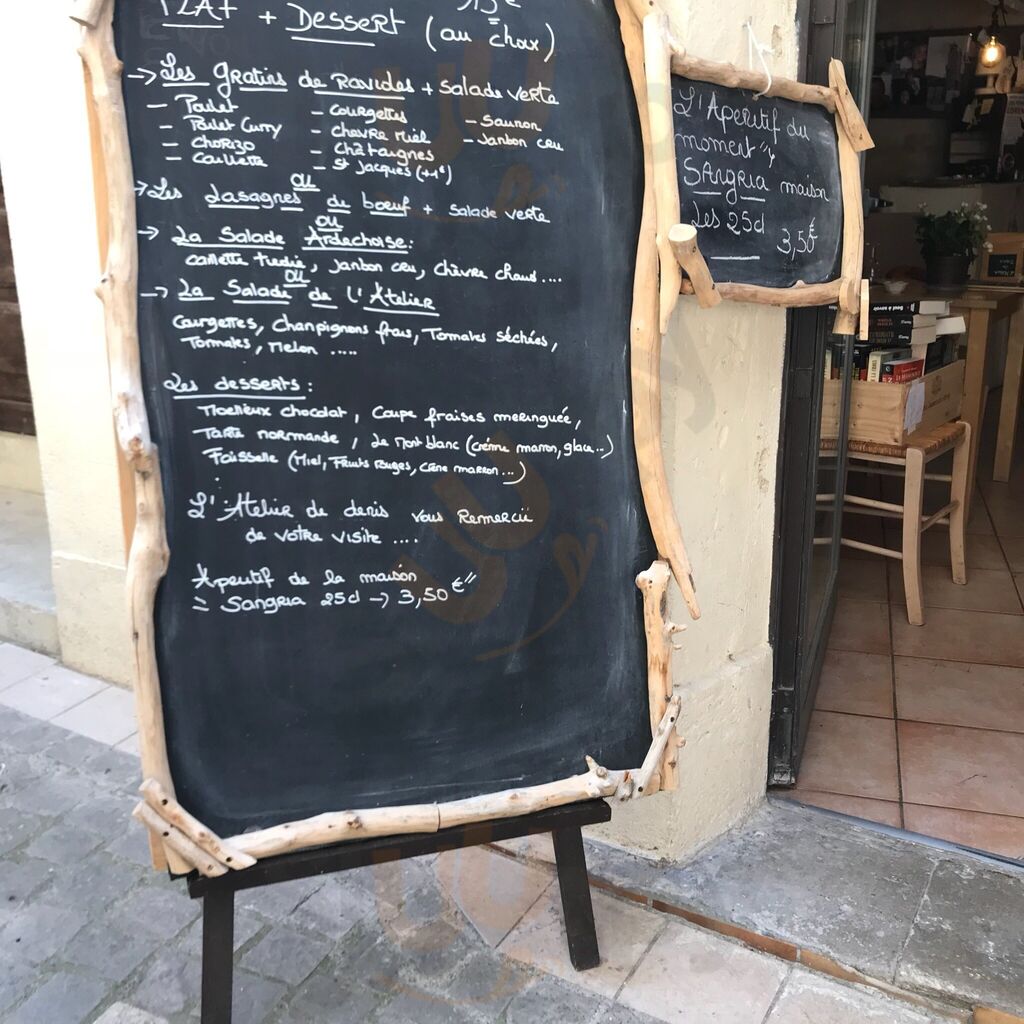 PLAT + DESSERT 15€
(au choix)
→ Les gratins de Ravioles + salade verte
- Poulet - Courgettes - Saumon
- Poulet Curry - Chèvre Miel - Janbon cru
- Chorizo - Châtaignes
- Caillette - St Jacques (+1€)
ou
→ Les Lasagnes de boeuf + salade verte
ou
→ La Salade Ardechoise:
caillette tiedie, janbon cru, chèvre chaud....
ou
→ La Salade de L'Atelier
Courgettes, Chanpignons frais, Tomates séchées,
Tomates, Melon .....
Les desserts :
Moelleux chocolat, Coupe fraises meringuée,
Tarte normande, Le Mont blanc (crème marron, glace...)
Faisselle (Miel, Fruits rouges, Crème marron...)
L'Atelier de denis vous Remercii
de votre visite ....
Aperitif de la maison
= Sangria 25cl → 3,50€"
L'Aperitif du
moment "
SANGRIA maison
Les 25cl
3,50€